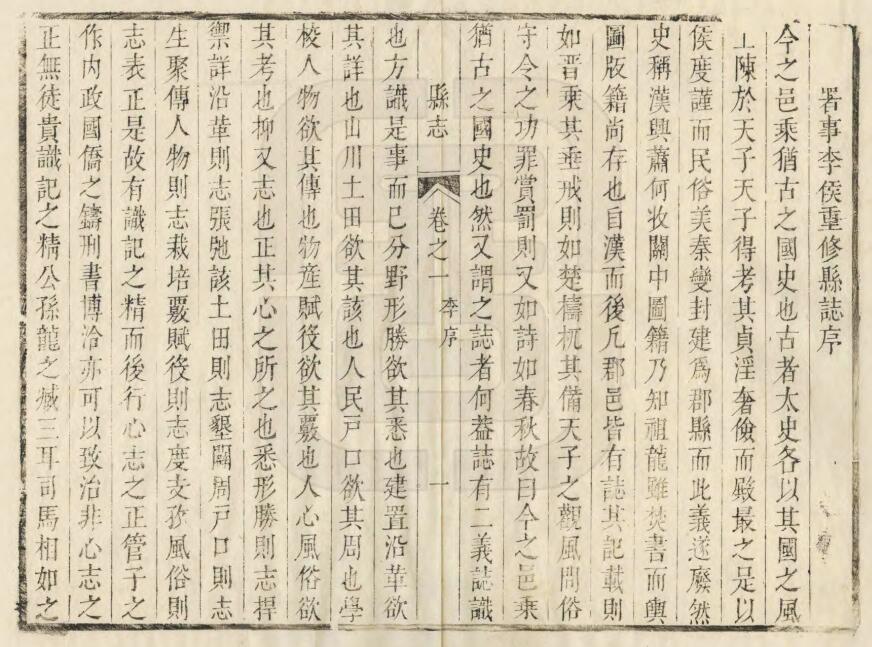 署事李侯重修縣誌序
今之邑乘猶古之國史也古者太史各以其國之風
上陳於天子天子得考其貞淫奢儉而殿最之是以
侯度謹而民俗美秦變封建爲郡縣而此義遂廢然
史稱漢興蕭何收關中圖籍乃知祖龍雖焚書而輿
圖版籍尚存也自漢而後凡郡邑皆有誌其記載則
如晋乘其垂戒則如楚檮杌其備天子之觀風問俗
守令之功罪賞罰則又如詩如春秋故曰今之邑乘
猶古之國史也然又謂之誌者何葢誌有二義誌識
縣志 卷之一 李序 一
也方識是事而已分野形勝欲其悉也建置沿革欲
其詳也山川土田欲其該也人民戸口欲其周也學
校人物欲其傳也物産賦役欲其覈也人心風俗欲
其考也抑又志也正其心之所之也悉形勝則志捍
禦詳沿革則志張弛該土田則志墾闢周戸口則志
生聚傳人物則志栽培覈賦役則志度支攷風俗則
志表正是故有識記之精而後行心志之正管子之
作内政國僑之鑄刑書博洽亦可以致治非心志之
正無徒貴識記之精公孫龍之臧三耳司馬相如之